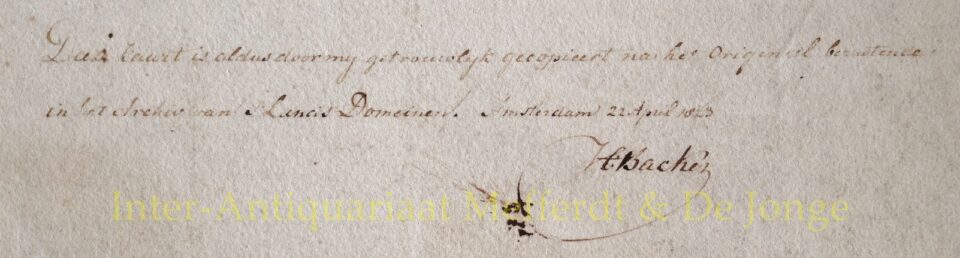 Deze Caart is aldus door my getrouwlyk gecopieert na het Origineel berustende
in het Archiv van S Lands Domeinen. Amsterdam 22 April 1823
HBaché
Inter-Antiquariaat Mefferdt & De Jonge